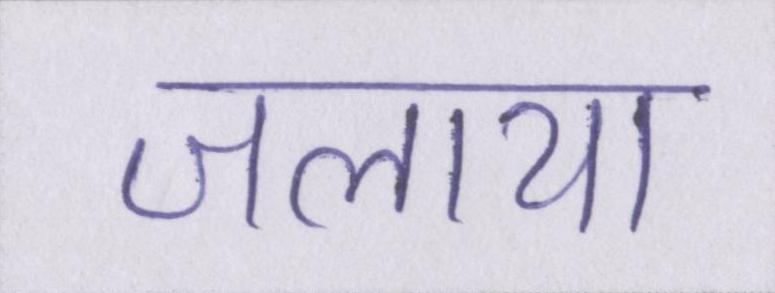 जलाया